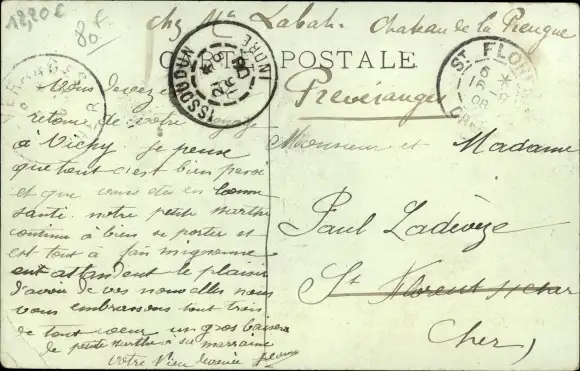 12,20 €
80 F
chez Mr Labah. Chateau de la Preugne
CARTE POSTALE
Preveranges
ISSOUDUN
INDRE
ST FLORENT
08
Vous devez
retour de votre voyage
à Vichy je pense
que tout c'est bien passé
et que vous êtes en bonne
santé. notre petite marthe
continue à bien se porter et
est tout à fait mignonne
en attendant le plaisir
d'avoir de vos nouvelles nous
vous embrassons tout trois
de tout coeur un gros baiser
de petite marthe à sa marraine
votre
Monsieur et Madame
Paul Ladevèze
St Florent s/ Cher
Cher)